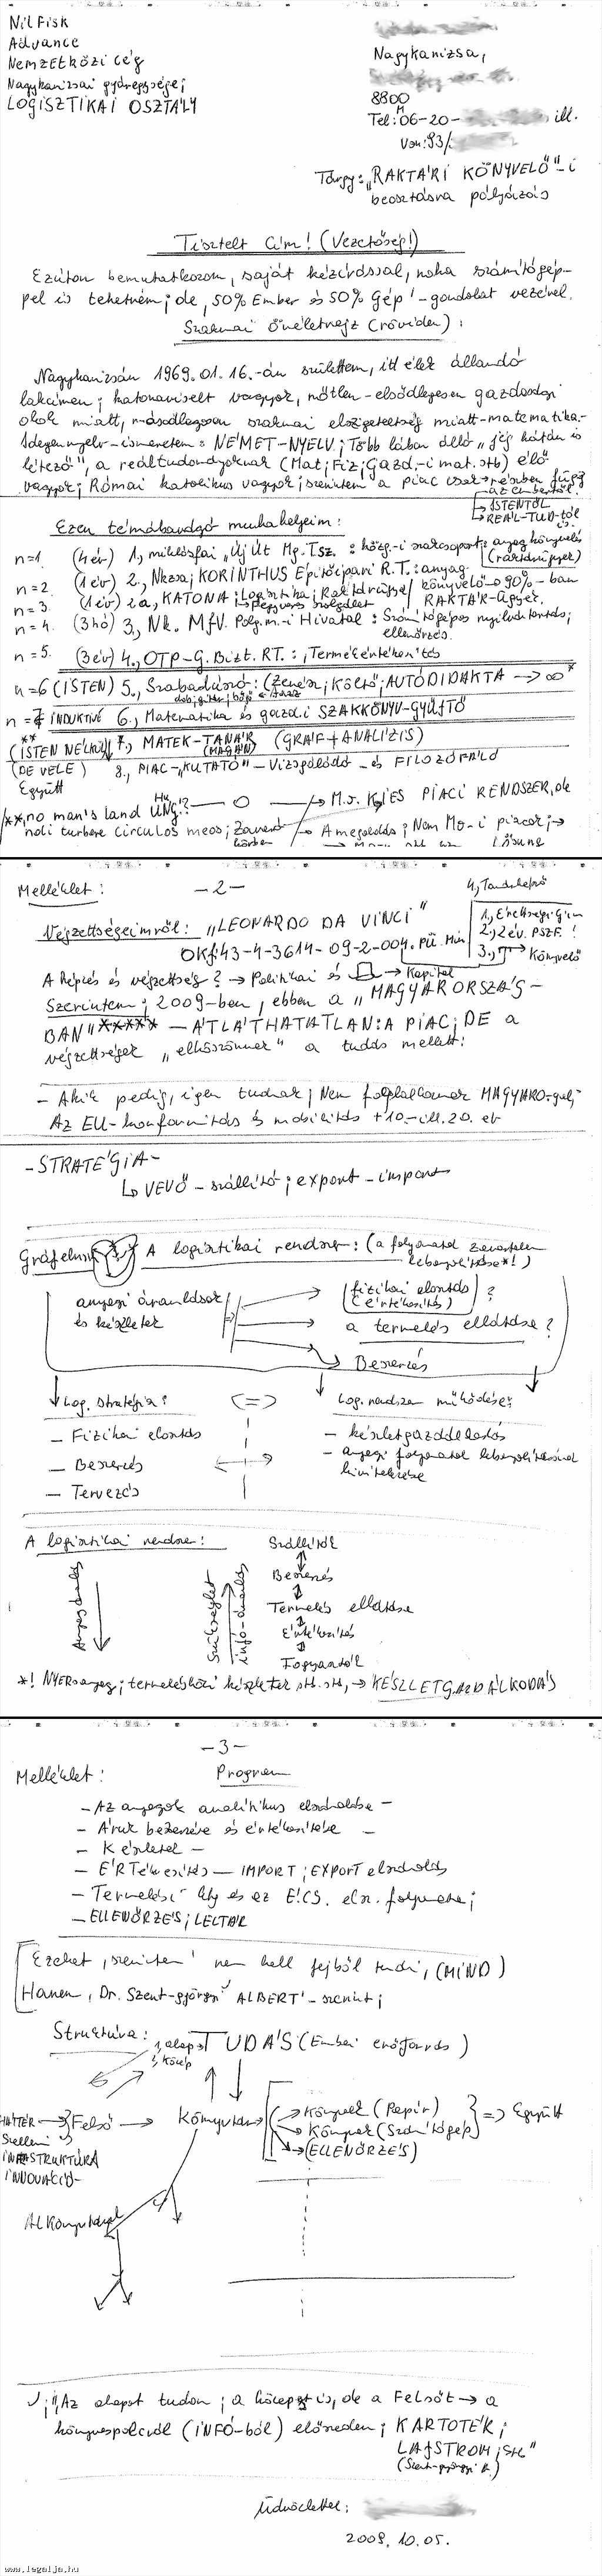 Nilfisk
Advance
Nemzetközi Cég
Nagykanizsai gyáregysége;
LOGISZTIKAI OSZTÁLY
Nagykanizsa,
8800
Tel: 06-20- ill.
Von: 93/
Tárgy: „RAKTÁRI KÖNYVELŐ"-i
beosztásra pályázás
Tisztelt Cím! (Vezetőség!)
Ezúton bemutatkozom, saját kézírással, noha számítógép-
pel is tehetném; de, 50% Ember és 50% Gép'-gondolat vezérel.
Szakmai Önéletrajz (röviden):
Nagykanizsán 1969.01.16.-án születtem, itt élek állandó
lakcímen; katonaviselt vagyok, nőtlen-elsődlegesen gazdasági
okok miatt, másodlagosan szakmai elszigeteltség miatt-matematika.-
Idegennyelv-ismeretem: NÉMET-NYELV; Több lábon álló „jég hátán is
létező", a reáltudományoknak (Mat; Fiz; Gazd.-i mat. stb) élő
vagyok; Római katolikus vagyok; szerintem a piac csak részben függ
az embertől.
ISTENTŐL
REÁL-TUD-tól
is.
Ezen témábavágó munkahelyeim:
n=1. (4év) 1, miklósfai „Új Út Mg. Tsz.: közg-i szakcsoport: anyagkönyvelés
(raktárügyek)
n=2. (1év) 2, Nkzsa; KORINTHUS Építőipari R.T.: anyag-
könyvelő → 90%-ban
n=3. (1év) 2a, KATONA: Logisztika; Raktárügyes/ RAKTÁR-ügyek.
Fegyveres szolgálat
n=4. (3hó) 3, Nk. MJV. Polg.m-i Hivatal: Számítógépes nyilvántartás;
ellenőrzés.
n=5. (3év) 4, OTP-G. Bizt. RT.:; Termékértékesítés
n=6 (ISTEN) 5., Szabadúszó: (Zenész; Költő; AUTÓDIDAKTA → ∞*
dob; gitár; bőgő
n=7 INDUKTÍVE 6, Matematika és gazd.i SZAKKÖNYV-GYŰJTŐ
** (ISTEN NÉLKÜL) 7, MATEK-TANÁR (GRÁF + ANALÍZIS)
(MAGÁN)
(DE VELE) 8, PIAC-„KUTATÓ" - Vizsgálódó - és FILOZOFÁLÓ
Együtt
**, no man's land
PIACI RENDSZER, de
noli turbare circulos meos;
A megoldás; Nem Mo-i piacok; →
Lösung
Melléklet: -2-
Végzettségeimről: „LEONARDO DA VINCI"
OKJ: 43-4-3614-09-2-004.
Könyvelő
A képzés és végzettség? → Politikai és → Kapital
Szerintem; 2009-ben, ebben a „MAGYARORSZÁG-
BAN" ***** - ÁTLÁTHATATLAN: A PIAC; DE a
végzettségek „elköszönnek" a tudás mellett:
- Akik pedig, igen tudnak; Nem foglalkoznak
Az EU-konformitás és mobilitás +10.-ill. 20. év
-STRATÉGIA-
↳ VEVŐ - szállító; export - import
A logisztikai rendszer: (a folyamatok zavartalan
lebonyolítása*!)
anyagi áramlások
és készletek
(fizikai elosztás
(értékesítés) ?
a termelés ellátása?
Beszerzés
Log. stratégia: (=) Log. rendszer működése:
- Fizikai elosztás
- Beszerzés
- Tervezés
- készletgazdálkodás
- anyagi folyamatok lebonyolításának
kivitelezése
A logisztikai rendszer:
Anyagáramlás
Szükséglet
infó-áramlás
Szállítók
Beszerzés
Termelés ellátása
Értékesítés
Fogyasztók
*! NYERSanyag; termelésközi készletek stb. stb, → KÉSZLETGAZDÁLKODÁS
-3-
Melléklet: Program
- Az anyagok analitikus elszámolása -
- Áruk beszerzése és értékesítése -
- Készletek -
- ÉRTékesítés - IMPORT; EXPORT elszámolás
- Termelési ktg és az ÉCS. elsz. folyamata;
- ELLENŐRZÉS; LELTÁR
Ezeket, szerintem' nem kell fejből tudni, (MIND)
Hanem, Dr. Szent-györgyi ALBERT'-szerint;
Struktúra: 1, alap TUDÁS (Emberi erőforrás)
2, közép
HÁTTÉR → Felső → Könyvtár → Könyvek (Papír)
→ Könyvek (Számítógép)
→ (ELLENŐRZÉS)
=> Együtt
Szellemi
INFRASTRUKTÚRA
INNOVÁCIÓ-
ALKönyvtárak
„Az alapot tudom; a közepet is, de a Felsőt → a
könyvespolcról (INFÓ-ból) előveszem; KARTOTÉK;
LAJSTROM; stb"
(Szent-györgyi A.)
Üdvözlettel:
2009. 10. 05.
www.legalja.hu